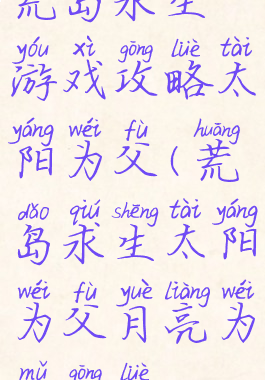 荒岛求生
yóu xì gōng lüè tài
游戏攻略太
yáng wéi fù huāng
阳为父(荒
dǎo qiú shēng tài yáng
岛求生太阳
wéi fù yuè liàng wéi
为父月亮为
mǔ gōng lüè